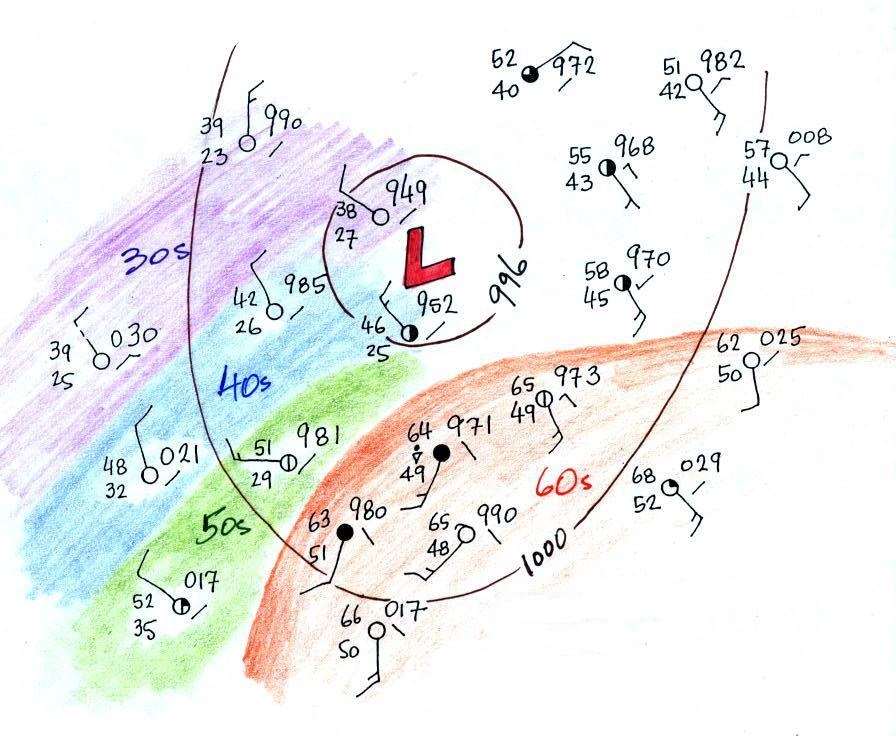 52 972
40
51 982
42
39 990
23
55 968
43
57 008
44
38 949
27
L
30s
42 985
26
996
58 970
45
46 952
25
39 030
25
40s
62 025
50
65 973
49
51 981
29
64 971
49
48 021
32
60s
68 029
52
50s
63 980
51
65 990
48
1000
52 017
35
66 017
50